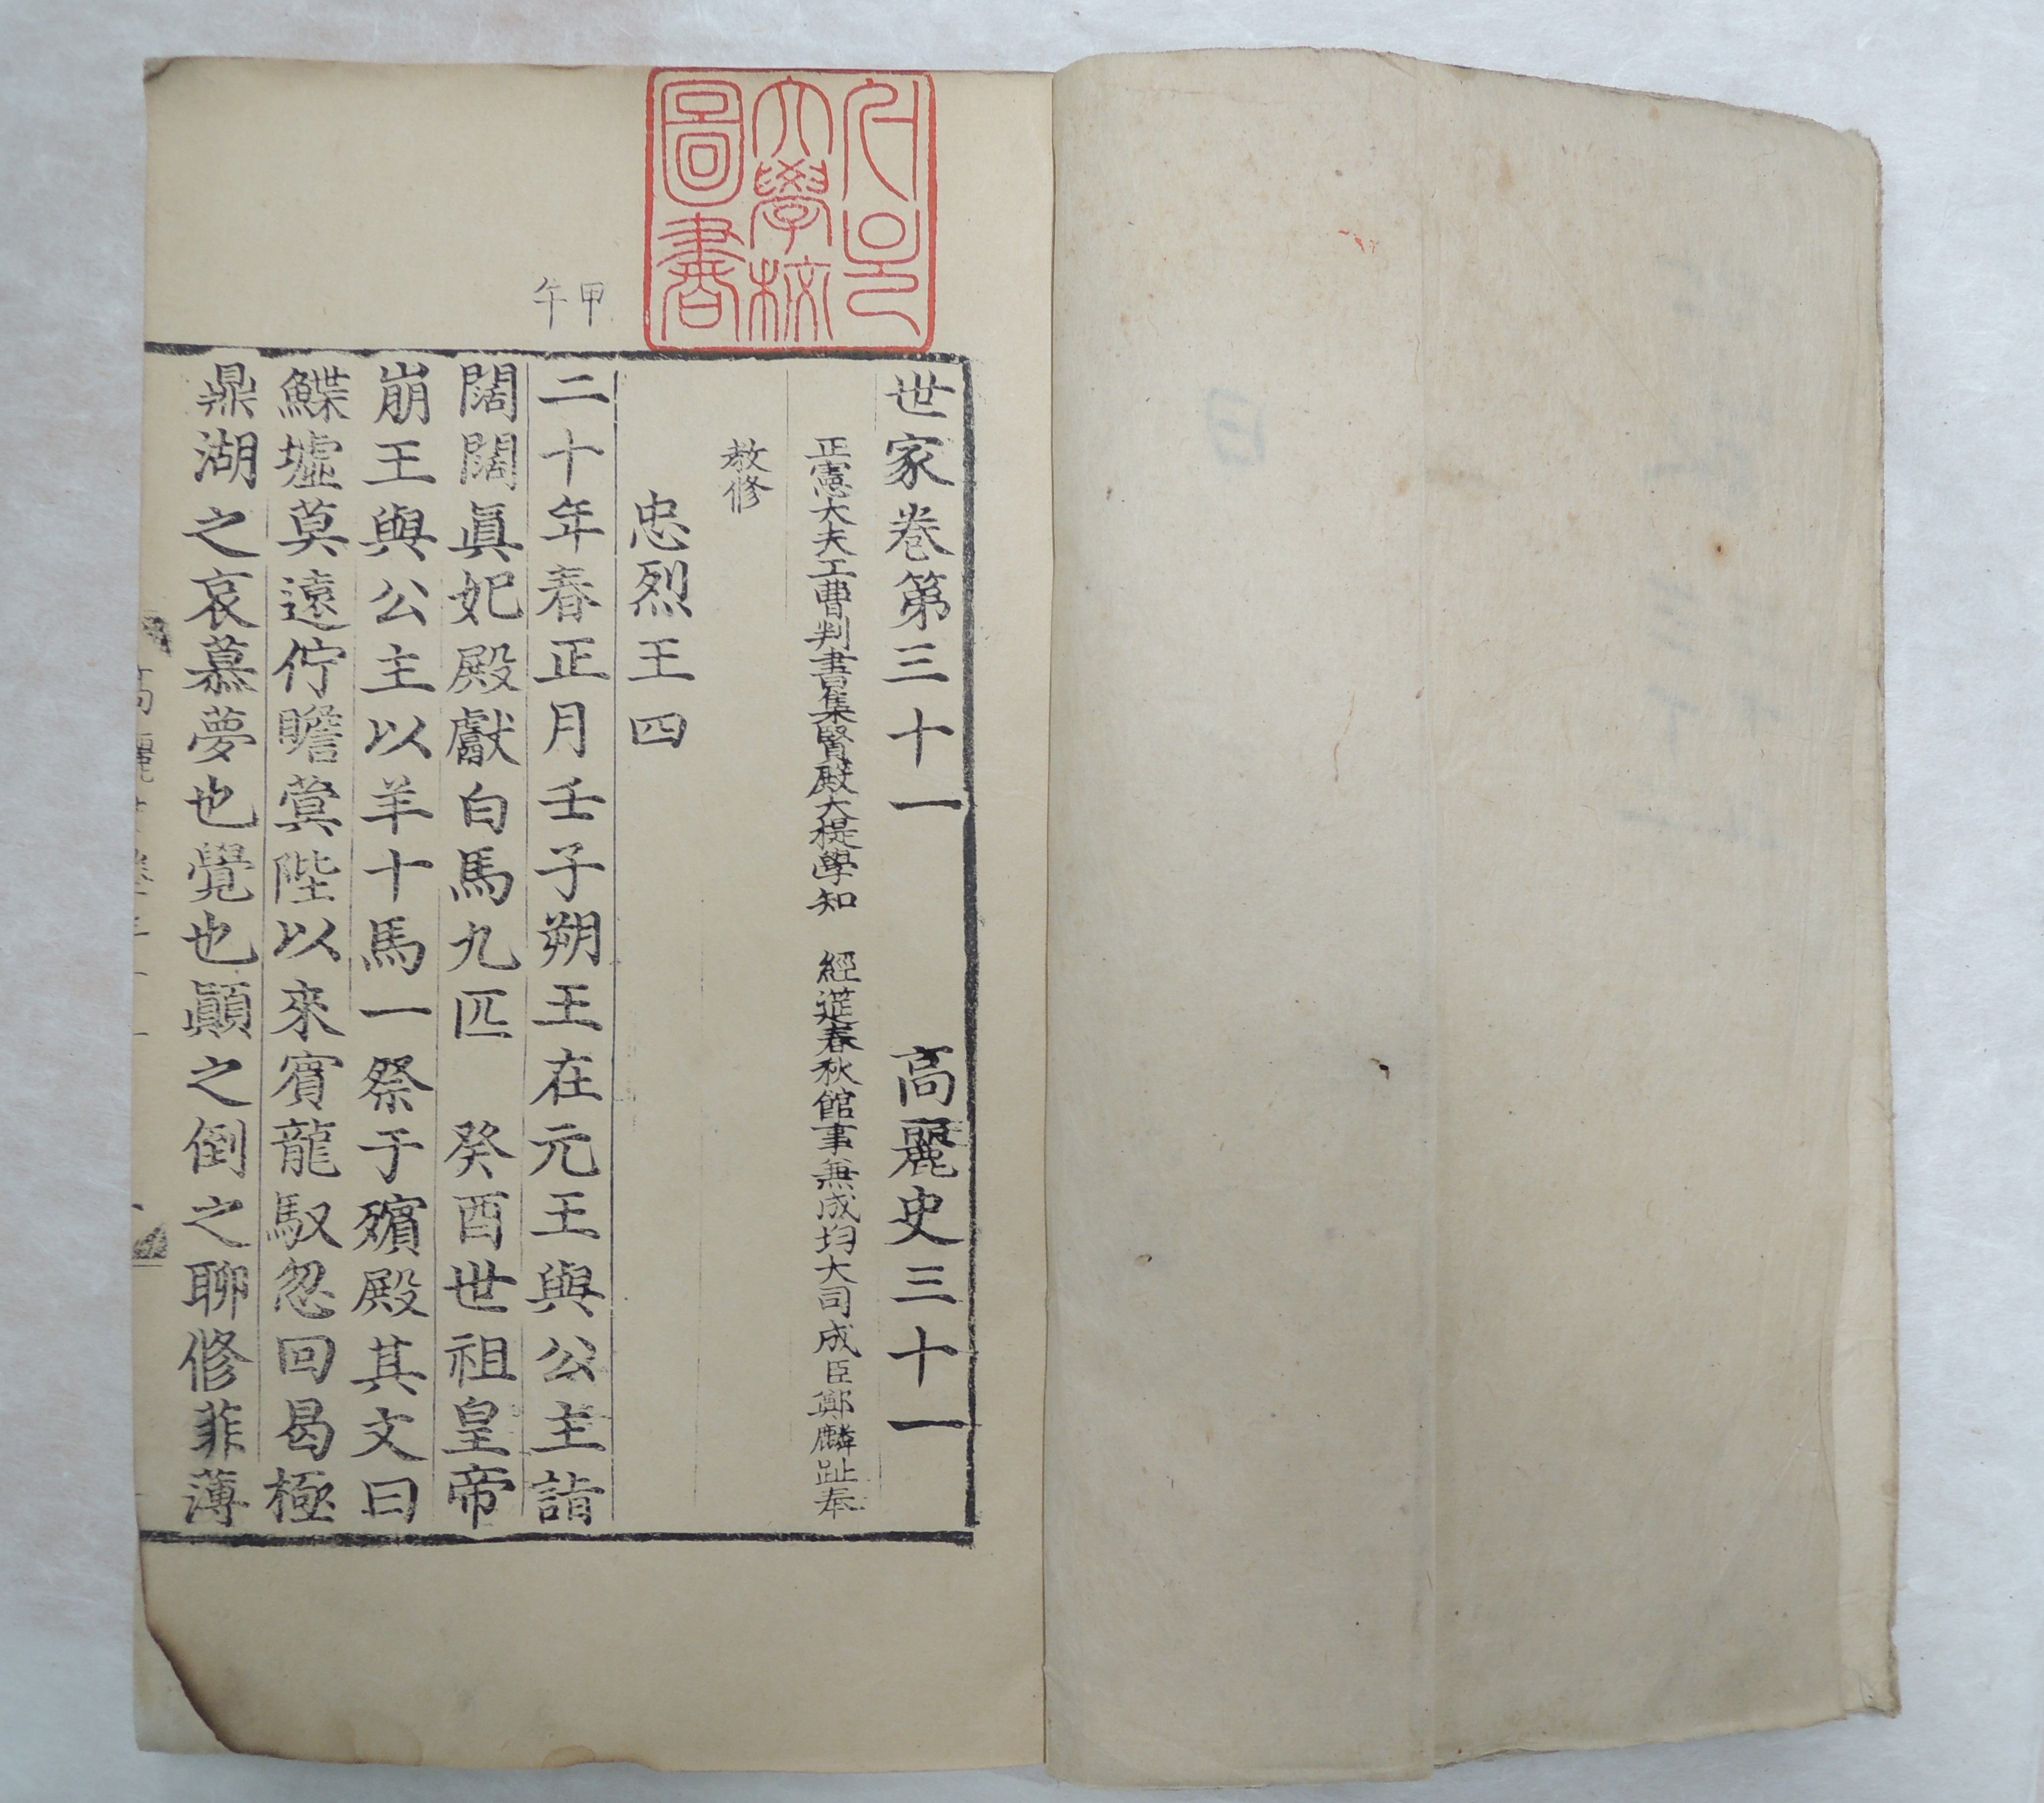 世家卷第三十一 高麗史三十一
正憲大夫工曹判書集賢殿大提學知 經筵春秋館事兼成均大司成臣鄭麟趾奉
敎修
忠烈王四
甲午
二十年春正月壬子朔王在元王與公主詣
闊闊眞妃殿獻白馬九匹 癸酉世祖皇帝
崩王與公主以羊十馬一祭于殯殿其文曰
鰈墟莫遠佇瞻蓂陛以來賓龍馭忽回曷極
鼎湖之哀慕夢也覺也顚之倒之聊修菲薄
大學校
圖書